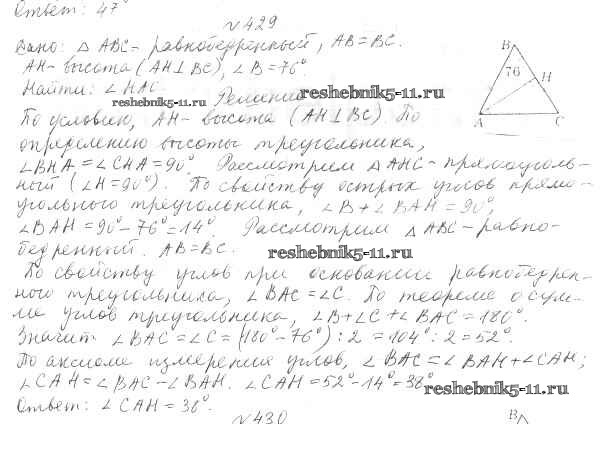 Ответ: 47°
№429
Дано: △ ABC - равнобедренный, AB=BC.
AH- высота (AH⊥BC), ∠B=76°
Найти: ∠HAC.
reshebnik5-11.ru
Решение
reshebnik5-11.ru
B
76
H
A
C
По условию, AH- высота (AH⊥BC). По
определению высоты треугольника,
∠BHA=∠CHA=90°. Рассмотрим △AHC- прямоуголь-
ный (∠H=90°). По свойству острых углов прямо-
угольного треугольника, ∠B+∠BAH=90°,
∠BAH=90°-76°=14°. Рассмотрим △ABC-равно-
бедренный. AB=BC.
reshebnik5-11.ru
По свойству углов при основании равнобедрен-
ного треугольника, ∠BAC=∠C. По теореме о сум-
ме углов треугольника, ∠B+∠C+∠BAC=180°.
Значит ∠BAC=∠C=(180°-76°):2=104°:2=52°.
По аксиоме измерения углов, ∠BAC=∠BAH+∠CAH;
∠CAH=∠BAC-∠BAH. ∠CAH=52°-14°=38°
reshebnik5-11.ru
Ответ: ∠CAH=38°.
№430
B